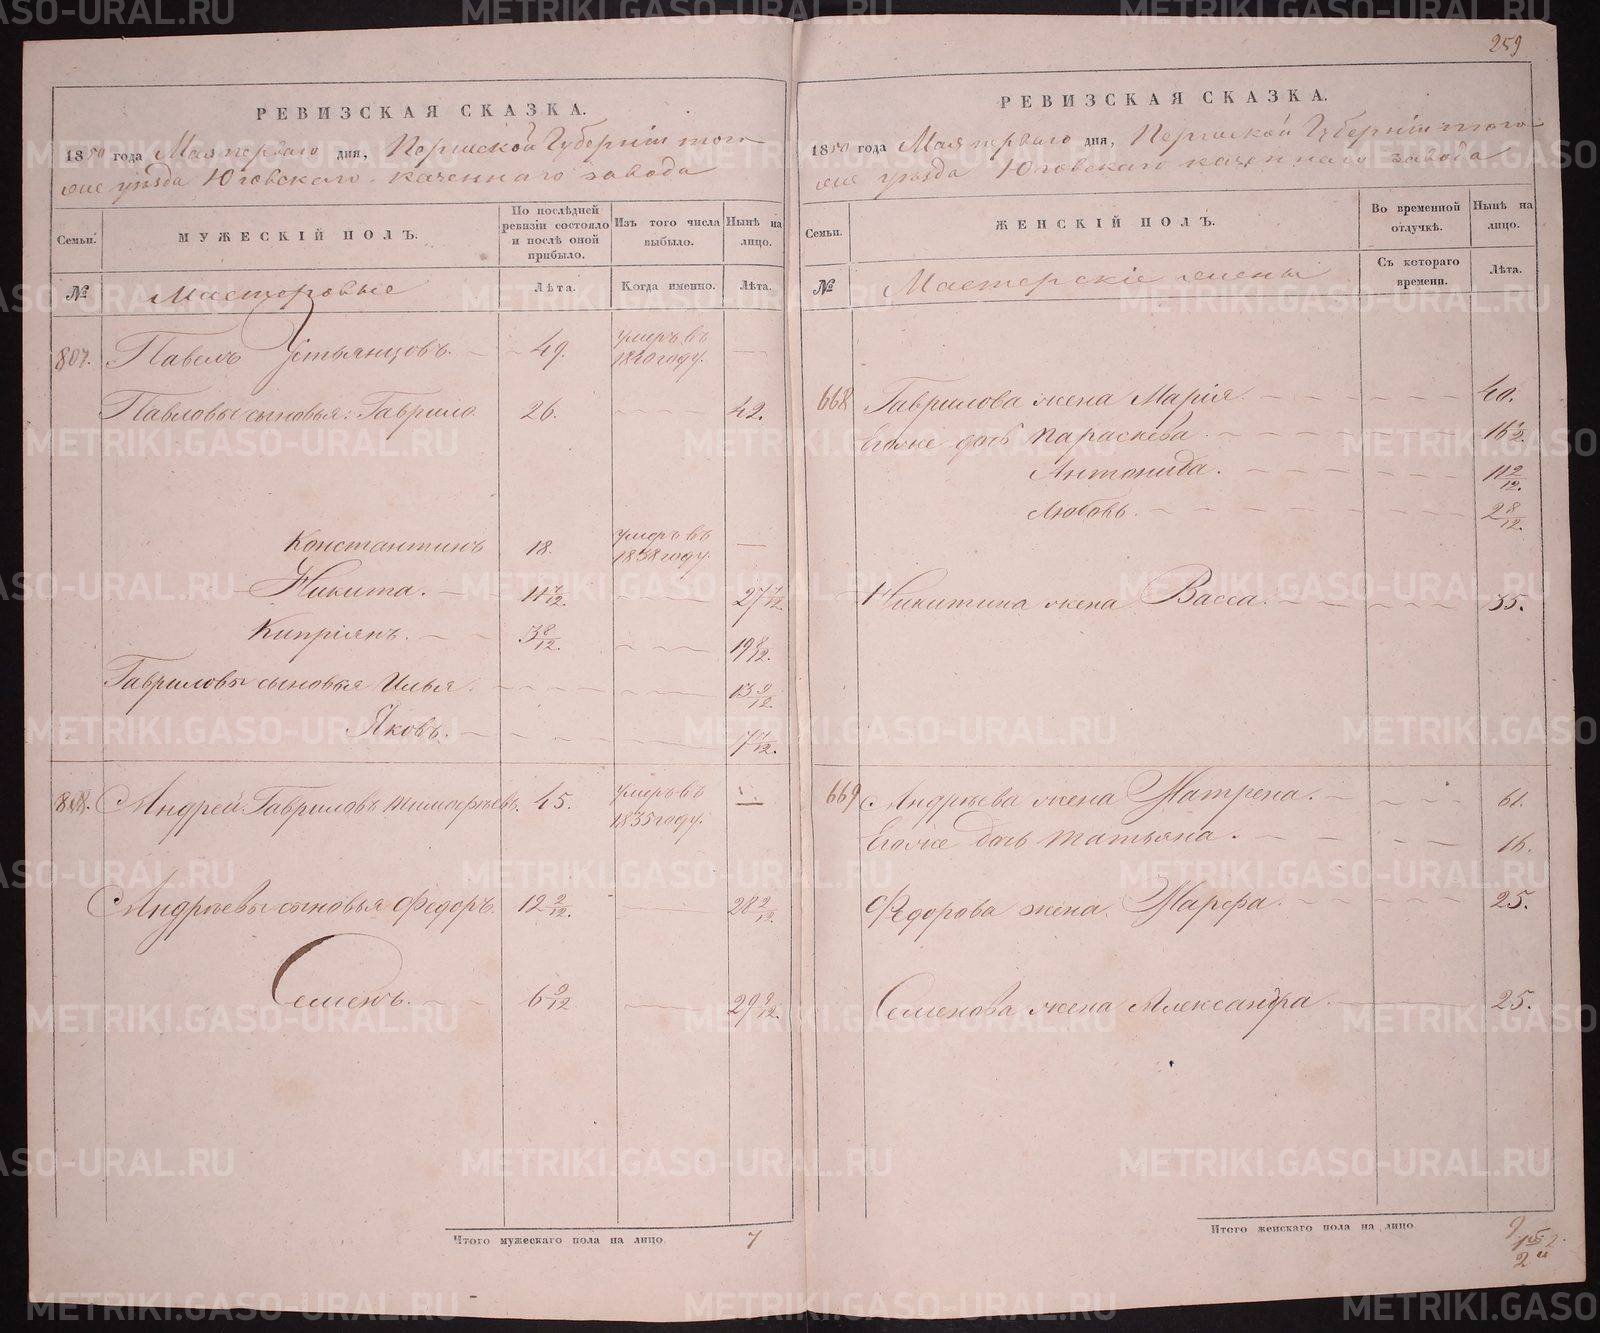 259
РЕВИЗСКАЯ СКАЗКА.
1850 года Мая первого дня, Пермской Губерніи того
же уѣзда Юговскаго казеннаго завода
Семьи. МУЖЕСКІЙ ПОЛЪ. По послѣдней ревизіи состояло и послѣ оной прибыло. Изъ того числа выбыло. Нынѣ на лицо.
№ Мастеровые Лѣта. Когда именно. Лѣта.
807. Павелъ Устьянцовъ. 49. умеръ въ 1840 году.
Павловы сыновья: Гаврило 26. 42.
Константинъ 18. умеръ въ 1838 году.
Никита. 11 7/12. 27 7/12.
Кипріянъ. 3 8/12. 19 8/12.
Гавриловы сыновья Илья. 13 9/12.
Яковъ. 7 11/12.
808. Андрей Гавриловъ Тимофѣевъ. 45. умеръ въ 1835 году.
Андрѣевы сыновья Федоръ. 12 2/12. 28 2/12.
Семенъ. 6 9/12 29 9/12.
Итого мужескаго пола на лицо 7
РЕВИЗСКАЯ СКАЗКА.
1850 года Мая первого дня, Пермской Губерніи того
же уѣзда Юговскаго казеннаго завода
Семьи. ЖЕНСКІЙ ПОЛЪ. Во временной отлучкѣ. Нынѣ на лицо.
№ Мастерскіе жены Съ котораго времени. Лѣта.
668 Гаврилова жена Марія. 40.
Егоже дочь Параскева. 16
Антонида. 11 2/12.
Любовь. 2 8/12.
Никитина жена Васса. 35.
669 Андрѣева жена Матрена. 61.
Егоже дочь Татьяна. 16.
Федорова жена Марфа. 25.
Семенова жена Александра 25.
Итого женскаго пола на лицо 9
METRIKI.GASO-URAL.RU